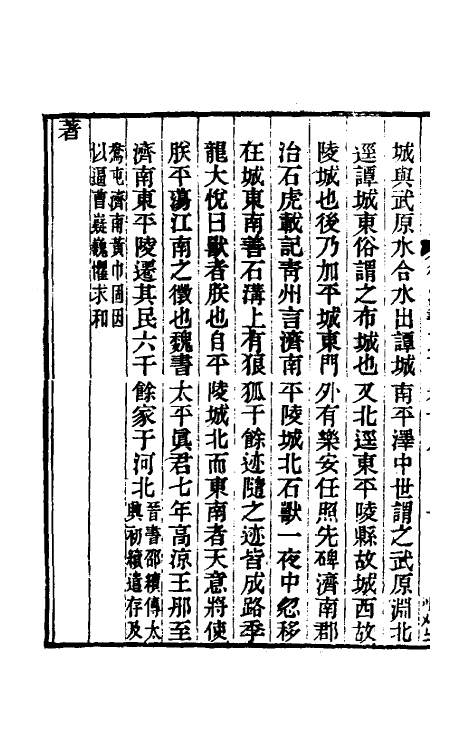 城與武原水合水出譚城南平澤中世謂之武原淵北
逕譚城東俗謂之布城也又北逕東平陵縣故城西故
陵城也後乃加平城東門外有樂安任照先碑濟南郡
治石虎載記靑州言濟南平陵城北石獸一夜中忽移
在城東南善石溝上有狼狐千餘迹隨之迹皆成路季
龍大悅曰獸者朕也自平陵城北而東南者天意將使
朕平蕩江南之徵也魏書太平眞君七年高涼王那至
濟南東平陵遷其民六千餘家于河北晉書邵續傳太
興初續遣存及
鴦屯濟南黃巾固因
以逼曹嶷嶷懼求和
著